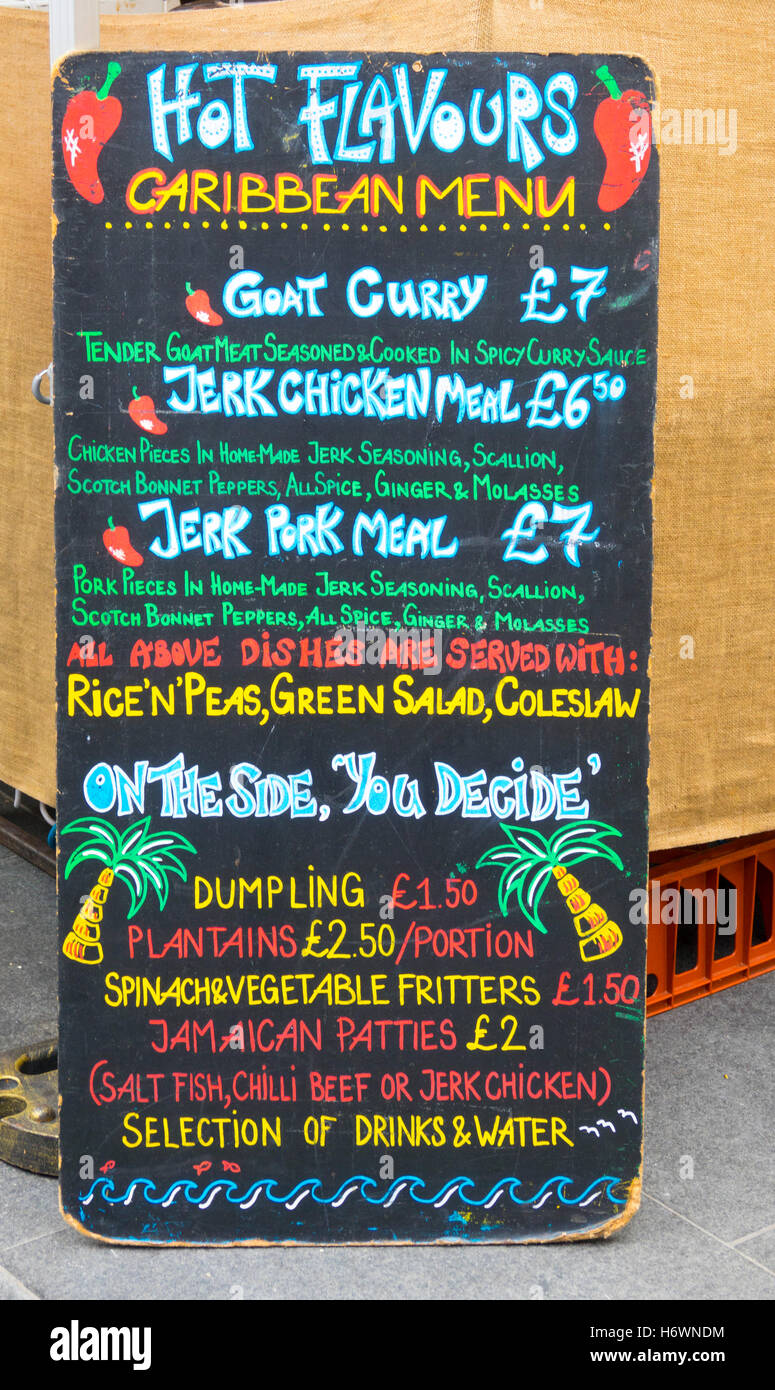 HOT FLAVOURS
CARIBBEAN MENU
GOAT CURRY £7
TENDER GOAT MEAT SEASONED & COOKED IN SPICY CURRY SAUCE
JERK CHICKEN MEAL £6 50
CHICKEN PIECES IN HOME-MADE JERK SEASONING, SCALLION,
SCOTCH BONNET PEPPERS, ALLSPICE, GINGER & MOLASSES
JERK PORK MEAL £7
PORK PIECES IN HOME-MADE JERK SEASONING, SCALLION,
SCOTCH BONNET PEPPERS, ALL SPICE, GINGER & MOLASSES
ALL ABOVE DISHES ARE SERVED WITH:
RICE 'N' PEAS, GREEN SALAD, COLESLAW
ON THE SIDE, 'YOU DECIDE'
DUMPLING £1.50
PLANTAINS £2.50/PORTION
SPINACH & VEGETABLE FRITTERS £1.50
JAMAICAN PATTIES £2
(SALT FISH, CHILLI BEEF OR JERK CHICKEN)
SELECTION OF DRINKS & WATER
alamy stock photo
H6WNDM
www.alamy.com